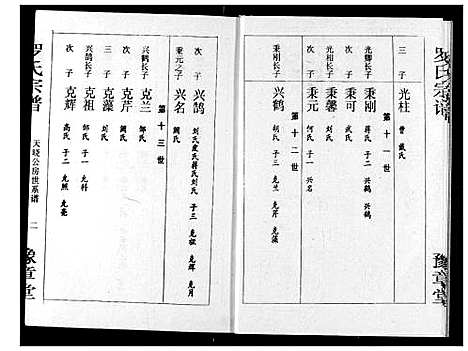 罗氏宗谱
豫章堂
三子 光柱 曾 戴氏
第十一世
光卿长子 秉刚 蒋氏 子二 兴鹤 兴鹄
次子 秉可 武氏
光相长子 秉馨 刘氏
次子 秉元 何氏 子一 兴名
第十二世
秉刚长子 兴鹤 胡氏 子三 克兰 克芹 克藻
次子 兴鹄 刘氏 子三 克祖 克辉 克月
秉元之子 兴名 阙氏
第十三世
兴鹤长子 克兰 邹氏
次子 克芹
三子 克藻
兴鹄长子 克祖 邹氏 子一 光科
次子 克辉 高氏 子二 光照 光亮
罗氏宗谱
天晓公房世系谱
二
豫章堂